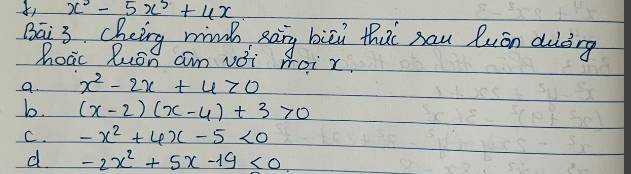 x³ - 5x³ + 4x
Bài 3. chứng minh rằng biểu thức sau luôn dương
hoặc luôn âm với mọi x.
a. x² - 2x + 4 > 0
b. (x - 2)(x - 4) + 3 > 0
c. -x² + 4x - 5 < 0
d. -2x² + 5x - 19 < 0